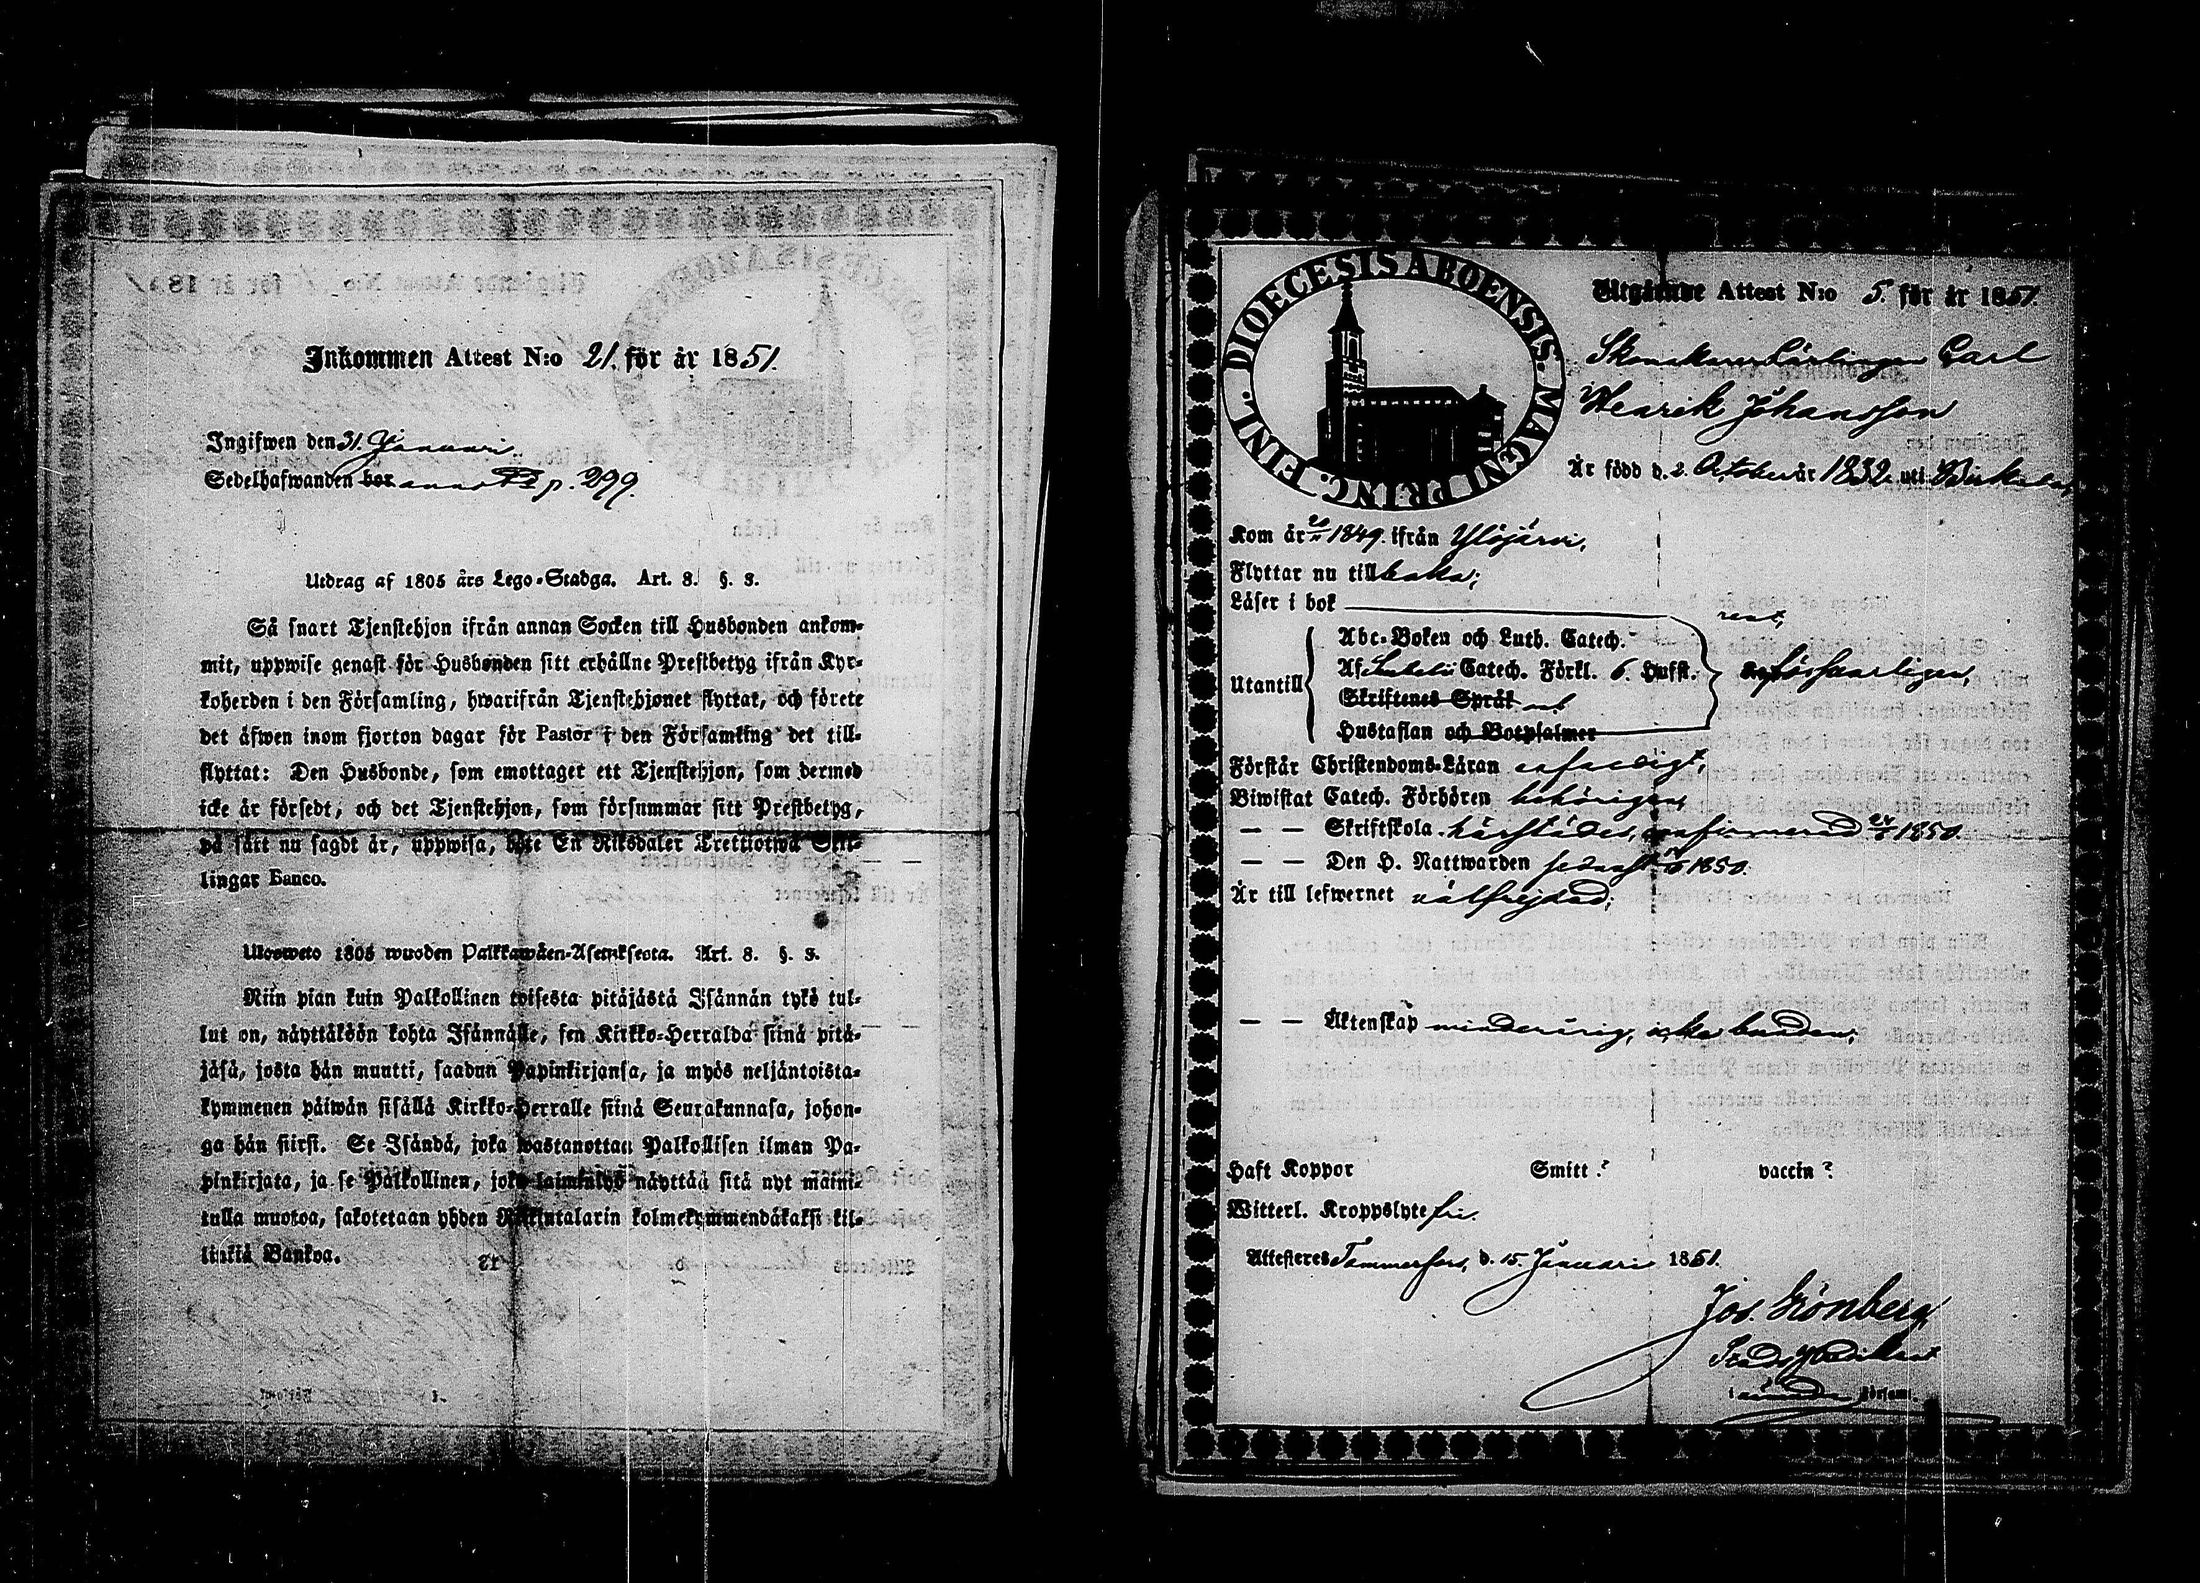 Inkommen Attest N:o 21. för år 1851.
Ingifwen den 31. Januari.
Sedelhafwanden bor anno p. 299.
Utdrag af 1805 års Lego-Stadga. Art. 8. §. 3.
Så snart Tjenstehjon ifrån annan Socken till Husbonden ankom-
mit, uppwise genast för Husbonden sitt erhållne Prestbetyg ifrån Kyr-
koherden i den Församling, hwarifrån Tjenstehjonet flyttat, och förete
det äfwen inom fjorton dagar för Pastor i den Församling det till-
flyttat: Den Husbonde, som emottaget ett Tjenstehjon, som dermed
icke är försedt, och det Tjenstehjon, som försummar sitt Prestbetyg,
på sätt nu sagdt är, uppwisa, böte En Riksdaler Trettiotwå Skil-
lingar Banco.
Ulosweto 1805 wuoden Palkkawäen-Asetuksesta. Art. 8. §. 3.
Niin pian kuin Palkollinen toisesta pitäjästä Isännän tykö tul-
lut on, näyttäköön kohta Isännälle, sen Kirkko-Herralda siinä pitä-
jäsä, josta hän muutti, saadun Papinkirjansa, ja myös neljäntoista-
kymmenen päiwän sisällä Kirkko-Herralle siinä Seurakunnasa, johon-
ga hän siirsi. Se Isändä, joka wastanottaa Palkollisen ilman Pa-
pinkirjata, ja se Palkollinen, joka laiminlyö näyttää sitä nyt maini-
tulla muotoa, sakotetaan yhden Riikintalarin kolmekymmendäkaksi kil-
linkiä Bankoa.
DIOECESIS ABOENSIS. MAGNI PRINC. FINL.
Utgående Attest N:o 5. för år 1851.
Skomakare Lärlingen Carl
Henrik Johansson
Är född d. 2. October år 1832 uti Birkala,
Kom år 1849. ifrån Ylöjärvi,
Flyttar nu tillbaka;
Läser i bok rent,
Abc-Boken och Luth. Catech.
Utantill Af Catech. Förkl. 6. Hufst. försvarligen,
Skriftenes Språk och
Hustaflan och Botpsalmer
Förstår Christendoms-Läran enfaldigt,
Biwistat Catech. Förhören behörigen,
— — Skriftskola härstädes, confirmerad 1850.
— — Den H. Nattwarden sednast 1850.
Är till lefwernet välfrejdad;
— — Äktenskap minderårig, icke bunden;
Haft Koppor Smitt.? vaccin?
Witterl. Kroppslyte fri.
Attesteres Tammerfors, d. 15. Januari 1851.
Jos. Grönberg
Stads Prädikant
i församl.